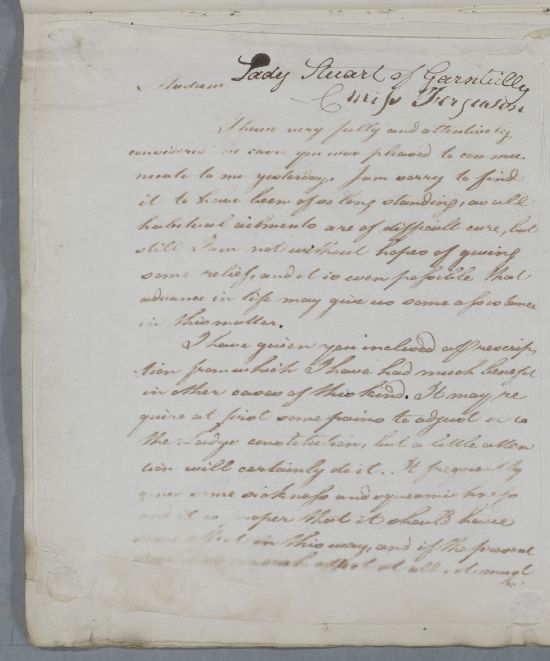 Lady Stuart of Garntully
Madam
Miss Ferguson
I have very fully and attentively
considered the case you were pleased to commu
nicate to me yesterday. I am sorry to find
it to have been of so long standing, as all
habitual ailments are of difficult cure, but
still I am not without hopes of giving
some relief, and it is even possible that
advance in life may give us some assistance
in this matter.
I have given you inclosed a prescrip
tion from which I have had much benefit
in other cases of this kind. It may re
quire at first some pains to adjust it to
the Ladys constitution, but a little atten
tion will certainly do it. It frequently
gives some sickness and squeamishness
and it is proper that it should have
some effect in this way, and if the present
effect at all it must